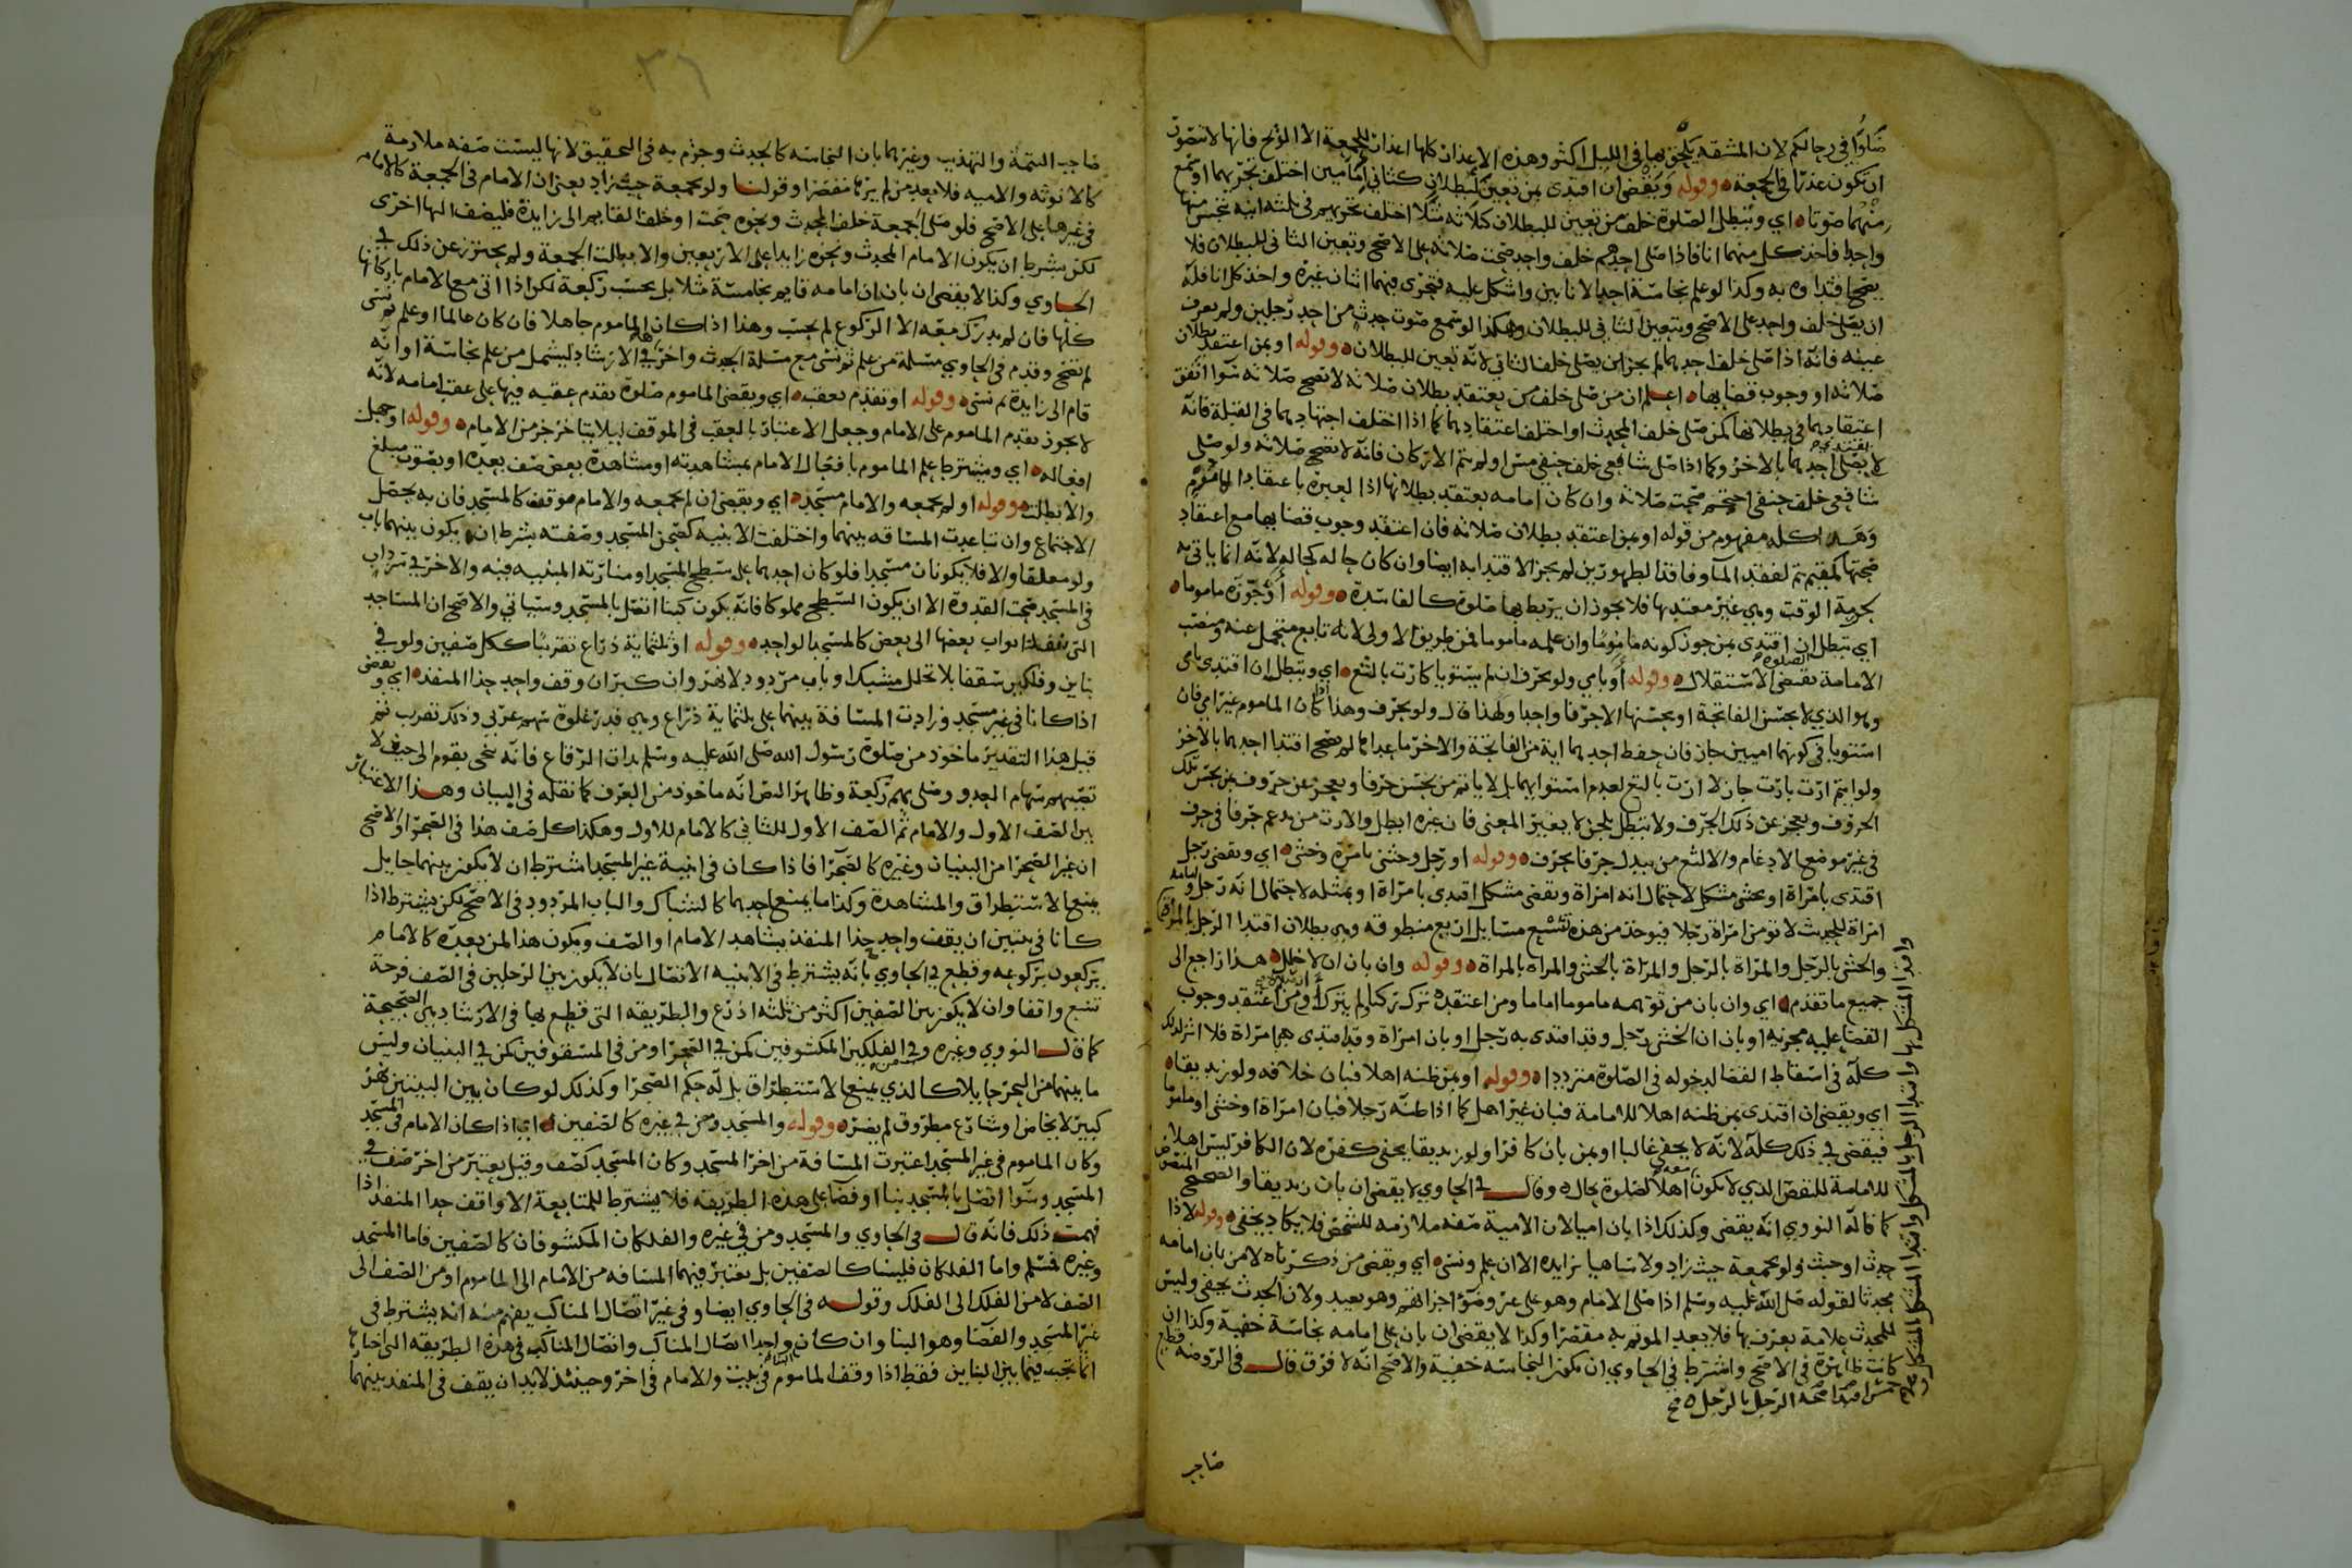 صلوا في رحالكم لان المشقه بها في الليل اكثر وهذه الاعذار كلها اعذار للجمعة الا الريح فانها لا تتصور
ان تكون عذرا في الجمعة وقوله ويقضي ان اقتدى بمن تعين لبطلان كثاني امامين اختلف تحريهما او سمع
منهما صوتا اي وتبطل الصلوة خلف من تعين للبطلان كثلاثه مثلا اختلف تحريهم في ثلثه انيه نجس منها
واحد فاخذ كل منهما انا فاذا صلى احدهم خلف واحد صحت صلاته على الاصح وتعين الثاني للبطلان فلا
يصح اقتداوه به وكذا لو علم نجاسة احد الانابين واشكل عليه فتحرى فيهما اثنان غيره واخذ كل انا فله
ان يصلي خلف واحد على الاصح ويتعين الثاني للبطلان وهكذا لو سمع صوت حدث من احد رجلين ولم يعرف
عينه فانه اذا صلى خلف احدهما لم يجز ان يصلي خلف الثاني لانه تعين للبطلان وقوله او بمن اعتقد بطلان
صلاته او وجوب قضايها اعلم ان من صلى خلف من يعتقد بطلان صلاته لا تصح صلاته سوا اتفق
اعتقادهما في بطلانها كمن صلى خلف المحدث او اختلف اعتقادهما كما اذا اختلف اجتهادهما في القبلة فانه
لا يصلي احدهما بالاخر وكما اذا صلى شافعي خلف حنفي مس او لم يتم الاركان فانه لا تصح صلاته ولو صلى
شافعي خلف حنفي احتجم صحت صلاته وان كان امامه يعتقد بطلانها اذا العبرة باعتقاد الماموم
وهذا كله مفهوم من قوله او بمن اعتقد بطلان صلاته فان اعتقد وجوب قضايها مع اعتقاد
صحتها كمقيم تيمم لفقد الما وفاقد الطهورين لم يجز الاقتدا به ايضا وان كان حاله كحاله لانه انما ياتي به
لحرمة الوقت وهي غير معتد بها فلا يجوز ان يربط بها صلوة كالفاسدة وقوله او جوزه ماموما
اي تبطل ان اقتدى بمن جوز كونه ماموما وان علمه ماموما فمن طريق الاولى لانه تابع متحمل عنه ومنصب
الامامة يقتضي الاستقلال وقوله او بامي ولو بحرف ان لم يستويا كارت بالثغ اي وتبطل ان اقتدى بامي
وهو الذي لا يحسن الفاتحة او يحسنها الا حرفا واحدا ولهذا قال ولو بحرف وهذا اذا كان الماموم غير امي فان
استويا في كونهما اميين جاز فان حفظ احدهما اية من الفاتحة والاخر ما عداها لم يصح اقتدا احدهما بالاخر
ولو ايتم ارت بارت جاز لا ارت بالثغ لعدم استوايهما بل لا ياتم من يحسن حرفا ويعجز عن حروف بمن يحسن تلك
الحروف ويعجز عن ذلك الحرف ولا تبطل بلحن لا يغير المعنى فان غيره ابطل والارت من يدغم حرفا في حرف
في غير موضع الادغام والالثغ من يبدل حرفا بحرف وقوله او رجل وخنثى بامرة وخنثى اي ويقضي رجل
اقتدى بامراة او بخنثى مشكل لاحتمال انه امراة ويقضي مشكل اقتدى بامراة او بمثله لاحتمال انه رجل وامامه
امراة للحديث لا تؤمن امراة رجلا فيوخذ من هذه تسع مسايل اربع منطوقه وهي بطلان اقتدا الرجل بالمراة
والخنثى بالرجل والمراة بالرجل والمراة بالخنثى والمراه بالمراة وقوله وان بان ان لا خلل هذا راجع الى
جميع ما تقدم اي وان بان من توهمه ماموما اماما ومن اعتقده ترك ركنا لم يترك او من اعتقد وجوب
القضا عليه مجزيه او بان ان الخنثى رجل وقد اقتدى به رجل او بان امراة وقد اقتدى بها امراة فلا اثر لذلك
كله في اسقاط القضا لدخوله في الصلوة مترددا وقوله او بمن ظنه اهلا فبان خلافه ولو زنديقا
اي ويقضي ان اقتدى بمن ظنه اهلا للامامة فبان غير اهل كما اذا ظنه رجلا فبان امراة او خنثى او ماموما
فيقضي في ذلك كله لانه لا يخفى غالبا او بمن بان كافرا ولو زنديقا يخفي كفره لان الكافر ليس اهلا
للامامة للنقص الذي لا يكون معه اهلا لصلوة بحال وقال في الحاوي لا يقضي ان بان زنديقا والصحيح المنصوص
كما قاله النووي انه يقضي وكذلك اذا بان اميا لان الامية صفه ملازمه للشخص فلا يكاد يخفى وقوله لا ذا
حدث او خبث ولو بجمعة حيث زاد ولا ساهيا بزايده الا ان علم ونسي اي ويقضي من ذكرناه لا من بان امامه
محدثا لقوله صلى الله عليه وسلم اذا صلى الامام وهو على غير وضو اجزاتهم وهو يعيد ولان الحدث يخفى وليس
للمحدث علامة يعرف بها فلا يعد الموتم به مقصرا وكذا لا يقضي ان بان على امامه نجاسة خفية وكذا ان
كانت ظاهرة في الاصح واشترط في الحاوي ان تكون النجاسه خفية والاصح انه لا فرق قال في الروضه قطع
صاحب
صاحب التتمة والتهذيب وغيرهما بان النجاسه كالحدث وجزم به في التحقيق لانها ليست صفه ملازمة
كالانوثه والاميه فلا يعد من لم يرها مقصرا وقولنا ولو بجمعة حيث زاد يعني ان الامام في الجمعة كالامام
في غيرها على الاصح فلو صلى الجمعة خلف المحدث ونحوه صحت او خلف القايم الى زايدة فليضف اليها اخرى
لكن بشرط ان يكون الامام المحدث ونحوه زايدا على الاربعين والا بطلت الجمعة ولم يحترز عن ذلك في
الحاوي وكذا لا يقضي ان بان ان امامه قايم بخامسة مثلا بل يحسب ركعة لكن اذا اتى مع الامام باركانها
كلها فان لم يدرك معه الا الركوع لم يحسب وهذا اذا كان الماموم جاهلا فان كان عالما او علم ثم نسي
لم تصح وقدم في الحاوي مسئلة من علم ثم نسي مع مسئلة الحدث واخرها في الارشاد ليشمل من علم نجاسة او انه
قام الى زايدة ثم نسي وقوله او تقدم بعقب اي ويقضي الماموم صلوة تقدم عقبه فيها على عقب امامه لانه
لا يجوز تقدم الماموم على الامام وجعل الاعتبار بالعقب في الموقف ليلا يتاخر جزمن الامام وقوله او جهل
افعاله اي ويشترط علم الماموم بافعال الامام بمشاهدته او مشاهدة بعض صف بعده او بصوت مبلغ
والا بطلت وقوله او لم يجمعه والامام مسجد اي ويقضي ان لم يجمعه والامام موقف كالمسجد فان به يحصل
الاجتماع وان تباعدت المسافه بينهما واختلفت الابنيه كصحن المسجد وصفته بشرط ان يكون بينهما باب
ولو مغلقا والا فلا يكونان مسجدا فلو كان احدهما على سطح المسجد او منارته المبنيه فيه والاخر في سرداب
في المسجد صحت القدوة الا ان يكون السطح مملوكا فانه يكون كبنا اتصل بالمسجد وسياتي والاصح ان المساجد
التي تنفذ ابواب بعضها الى بعض كالمسجد الواحد وقوله او ثلثماية ذراع تقريبا ككل صفين ولو في
بناين وفلكين سقفا بلا تخلل مشبك او باب مردود لا نهر وان كبر ان وقف واحد حذا المنفذ اي ويقضي
اذا كانا في غير مسجد وزادت المسافة بينهما على ثلثماية ذراع وهي قدر غلوة سهم عربي وذلك تقريب نعم
قيل هذا التقدير ماخوذ من صلوة رسول الله صلى الله عليه وسلم بذات الرقاع فانه نحى بقوم الى حيث لا
تصيبهم سهام العدو وصلى بهم ركعة وظاهر النص انه ماخوذ من العرف كما نقله في البيان وهذا الاعتبار
بين الصف الاول والامام ثم الصف الاول للثاني كالامام للاول وهكذا كل صف هذا في الصحرا والاصح
ان غير الصحرا من البنيان وغيره كالصحرا فاذا كان في ابنية غير المسجد اشترط ان لا يكون بينهما حايل
يمنع الاستطراق والمشاهدة وكذا ما يمنع احدهما كالشباك والباب المردود في الاصح لكن يشترط اذا
كانا في بيتين ان يقف واحد حذا المنفذ يشاهد الامام او الصف ويكون هذا لمن بعده كالامام
يركعون بركوعه وقطع في الحاوي بانه يشترط في الابنيه الاتصال بان لا يكون بين الرجلين في الصف فرجة
تسع واقفا وان لا يكون بين الصفين اكثر من ثلثه اذرع والطريقه التي قطع بها في الارشاد هي الصحيحة
كما قال النووي وغيره وفي الفلكين المكشوفين كمن في الصحرا ومن في المسقوفين كمن في البنيان وليس
ما بينهما من البحر حايلا كالذي يمنع الاستطراق بل له حكم الصحرا وكذلك لو كان بين البيتين نهر
كبير لا يخاض او شارع مطروق لم يضر وقوله والمسجد ومن في غيره كالصفين اي اذا كان الامام في المسجد
وكان الماموم في غير المسجد اعتبرت المسافة من اخر المسجد وكان المسجد كصف وقيل يعتبر من اخر صف في
المسجد وسوا اتصل بالمسجد بنا او فضا على هذه الطريقه فلا يشترط للمتابعة الا واقف حذا المنفذ اذا
فهمت ذلك فانه قال في الحاوي والمسجد ومن في غيره والفلكان المكشوفان كالصفين فاما المسجد
وغيره فمسلم واما الفلكان فليسا كالصفين بل يعتبر فيهما المسافه من الامام الى الماموم او من الصف الى
الصف لا من الفلك الى الفلك وقوله في الحاوي ايضا وفي غير اتصال المناكب يفهم منه انه يشترط في
غير المسجد والفضا وهو البنا وان كان واحدا اتصال المناكب واتصال المناكب في هذه الطريقه التي اختارها
انما يجب فيما بين البناين فقط اذا وقف الماموم في بيت والامام في اخر وحينئذ لابد ان يقف في المنفذ بينهما
٣٦